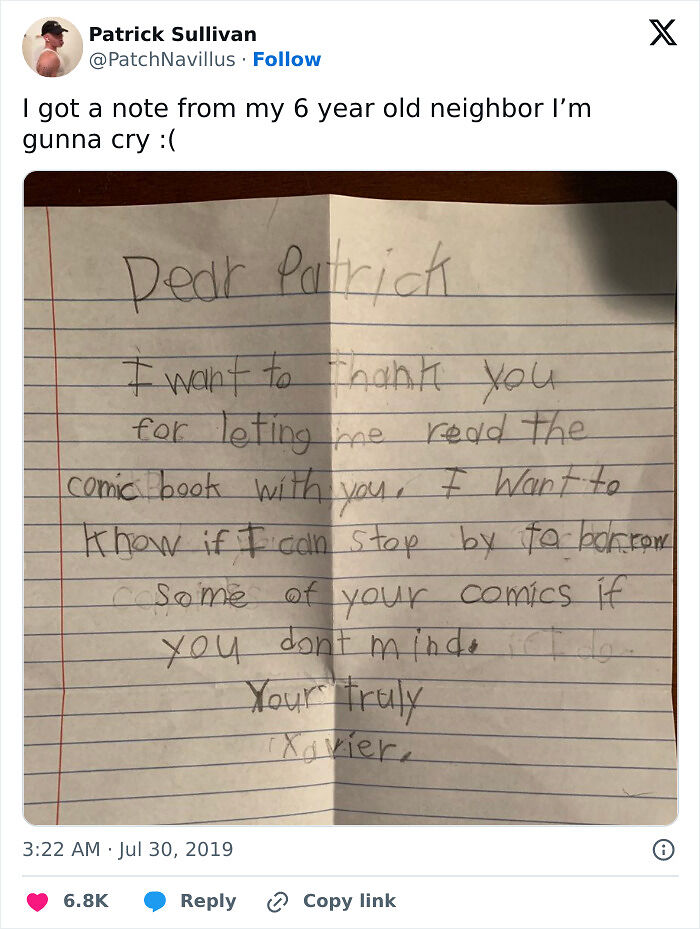 Patrick Sullivan
@PatchNavillus · Follow
I got a note from my 6 year old neighbor I’m
gunna cry :(
Dear Patrick
I want to thank you
for leting me read the
comic book with you. I Want to
know if I can stop by to borrow
some of your comics if
you dont mind.
Your truly
Xavier.
3:22 AM · Jul 30, 2019
6.8K Reply Copy link